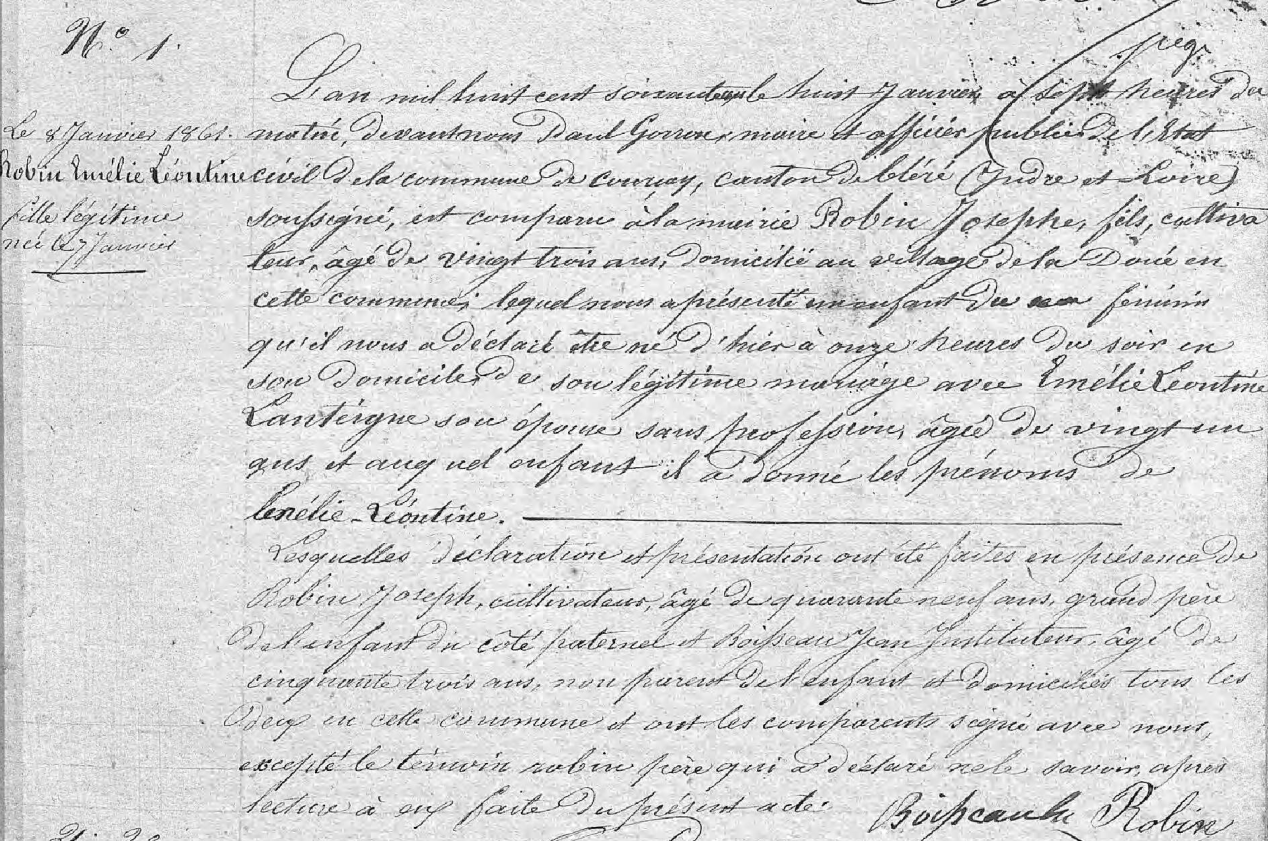 N.° 1.
L'an mil huit cent soixante un le huit Janvier à sept heures du
Le 8 Janvier 1861.
matin, devant nous Paul Gorron, maire et officier public de l'Etat
Robin Emélie Léontine
civil de la commune de Courçay, canton de bléré (Indre et Loire)
fille légitime
soussigné, est comparu à la mairie Robin Josephe, fils, cultiva
née le 7 Janvier
teur, âgé de vingt trois ans, domicilié au village de la Doué en
cette commune; lequel nous a présenté un enfant du féminin
qu'il nous a déclaré être né d'hier à onze heures du soir en
son domicile, de son légitime mariage avec Emélie Léontine
Lanteigne son épouse sans profession, âgée de vingt un
ans, et auquel enfant il a donné les prénoms de
Emélie-Léontine.
Lesquelles déclaration et présentation ont été faites en présence de
Robin Joseph, cultivateur, âgé de quarante neuf ans, grand père
de l'enfant du côté paternel et Boisseau Jean Instituteur, âgé de
cinquante trois ans, non parent de l'enfant et domiciliés tous les
deux en cette commune et ont les comparents signé avec nous,
excepté le témoin robin père qui a déclaré ne le savoir, après
lecture à eux faite du présent acte.
Robin